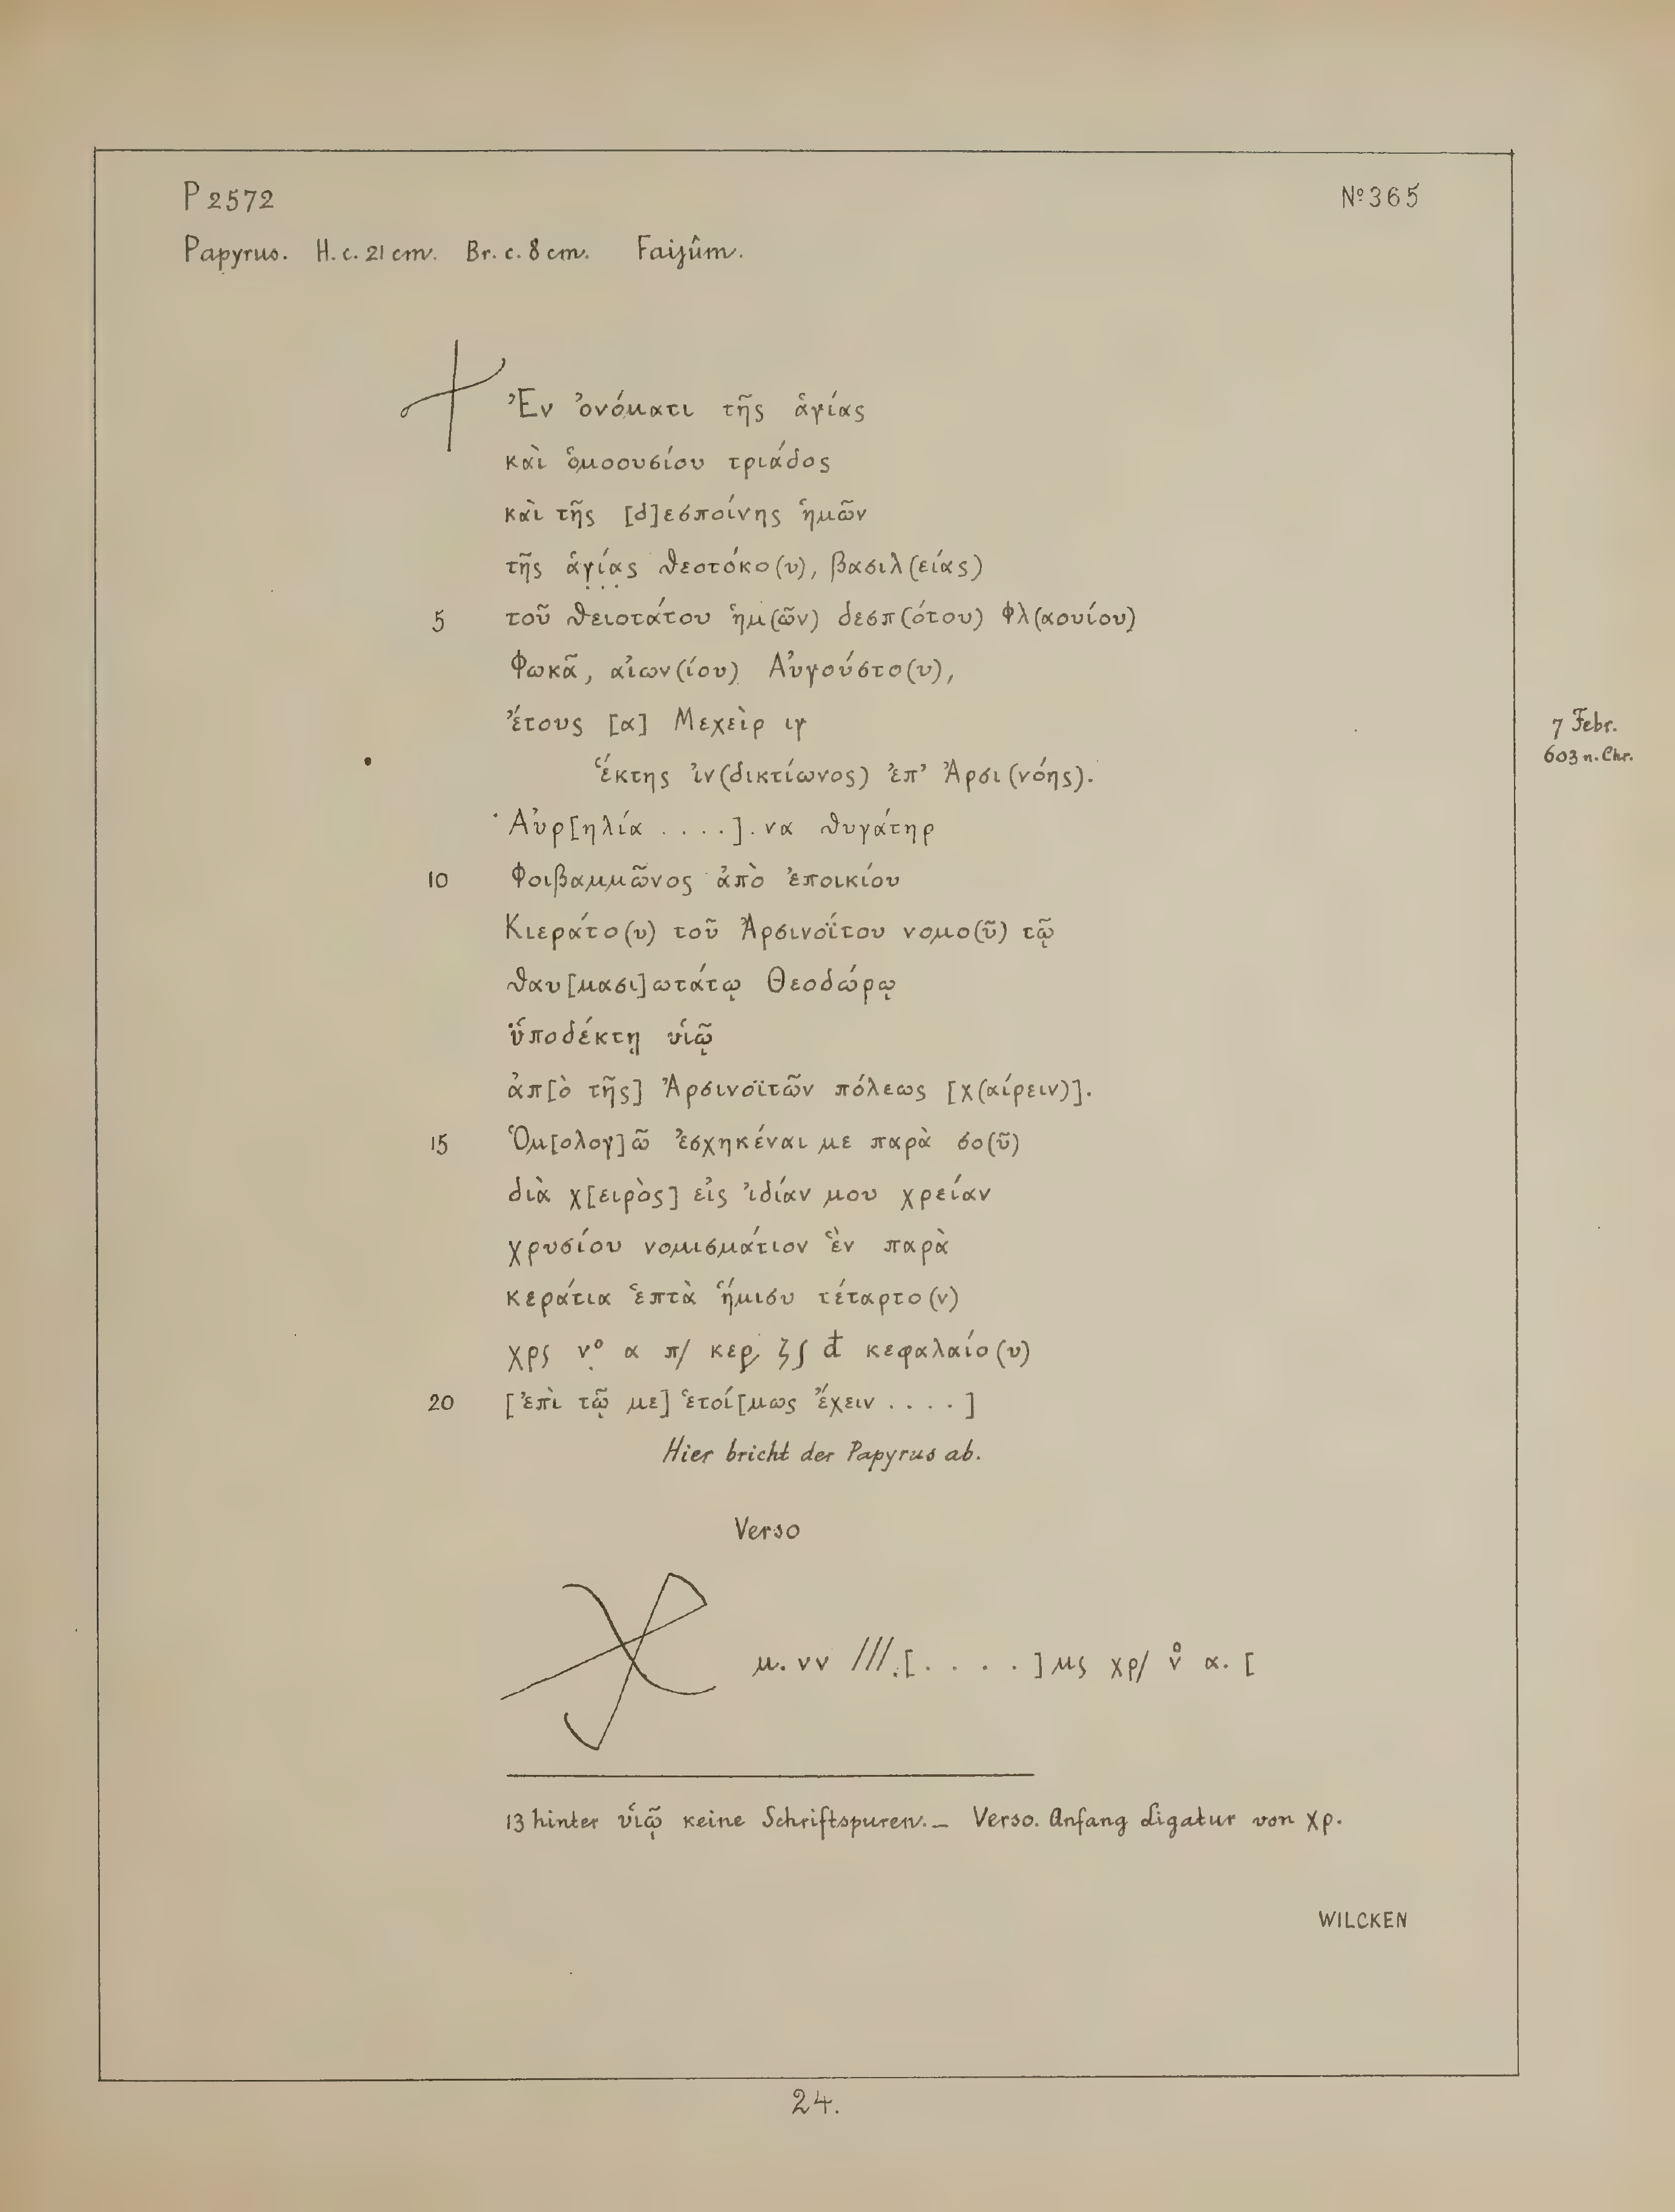 P 2572
Nº 365
Papyrus. H. c. 21 cm. Br. c. 8 cm. Faijûm.
Ἐν ὀνόματι τῆς ἁγίας
καὶ ὁμοουσίου τριάδος
καὶ τῆς [δ]εσποίνης ἡμῶν
τῆς ἁγ̣ί̣α̣ς θεοτόκο(υ), βασιλ(είας)
5 τοῦ θειοτάτου ἡμ(ῶν) δεσπ(ότου) Φλ(αουίου)
Φωκᾶ, αἰων(ίου) Αὐγούστο(υ),
ἔτους [α] Μεχεὶρ ιγ
7 Febr.
603 n. Chr.
ἕκτης ἰν(δικτίωνος) ἐπ’ Ἀρσι(νόης).
Αὐρ[ηλία . . . .] . να θυγάτηρ
10 Φοιβαμμῶνος ἀπὸ ἐποικίου
Κιεράτο(υ) τοῦ Ἀρσινοΐτου νομο(ῦ) τῷ
θαυ[μασι]ωτάτῳ Θεοδώρῳ
ὑποδέκτῃ υἱῷ
ἀπ[ὸ τῆς] Ἀρσινοϊτῶν πόλεως [χ(αίρειν)].
15 Ὁμ[ολογ]ῶ ἐσχηκέναι με παρὰ σο(ῦ)
διὰ χ[ειρὸς] εἰς ἰδίαν μου χρείαν
χρυσίου νομισμάτιον ἓν παρὰ
κεράτια ἑπτὰ ἥμισυ τέταρτο(ν)
χρς ν̣ο α π/ κερ ζʃ đ κεφαλαίο(υ)
20 [ἐπὶ τῷ με] ἑτοί[μως ἔχειν . . . .]
Hier bricht der Papyrus ab.
Verso
μ. νν ///.[. . . . ] μς χρ/ ν̊ α. [
13 hinter υἱῷ keine Schriftspuren. – Verso. Anfang Ligatur von χρ.
WILCKEN
24.